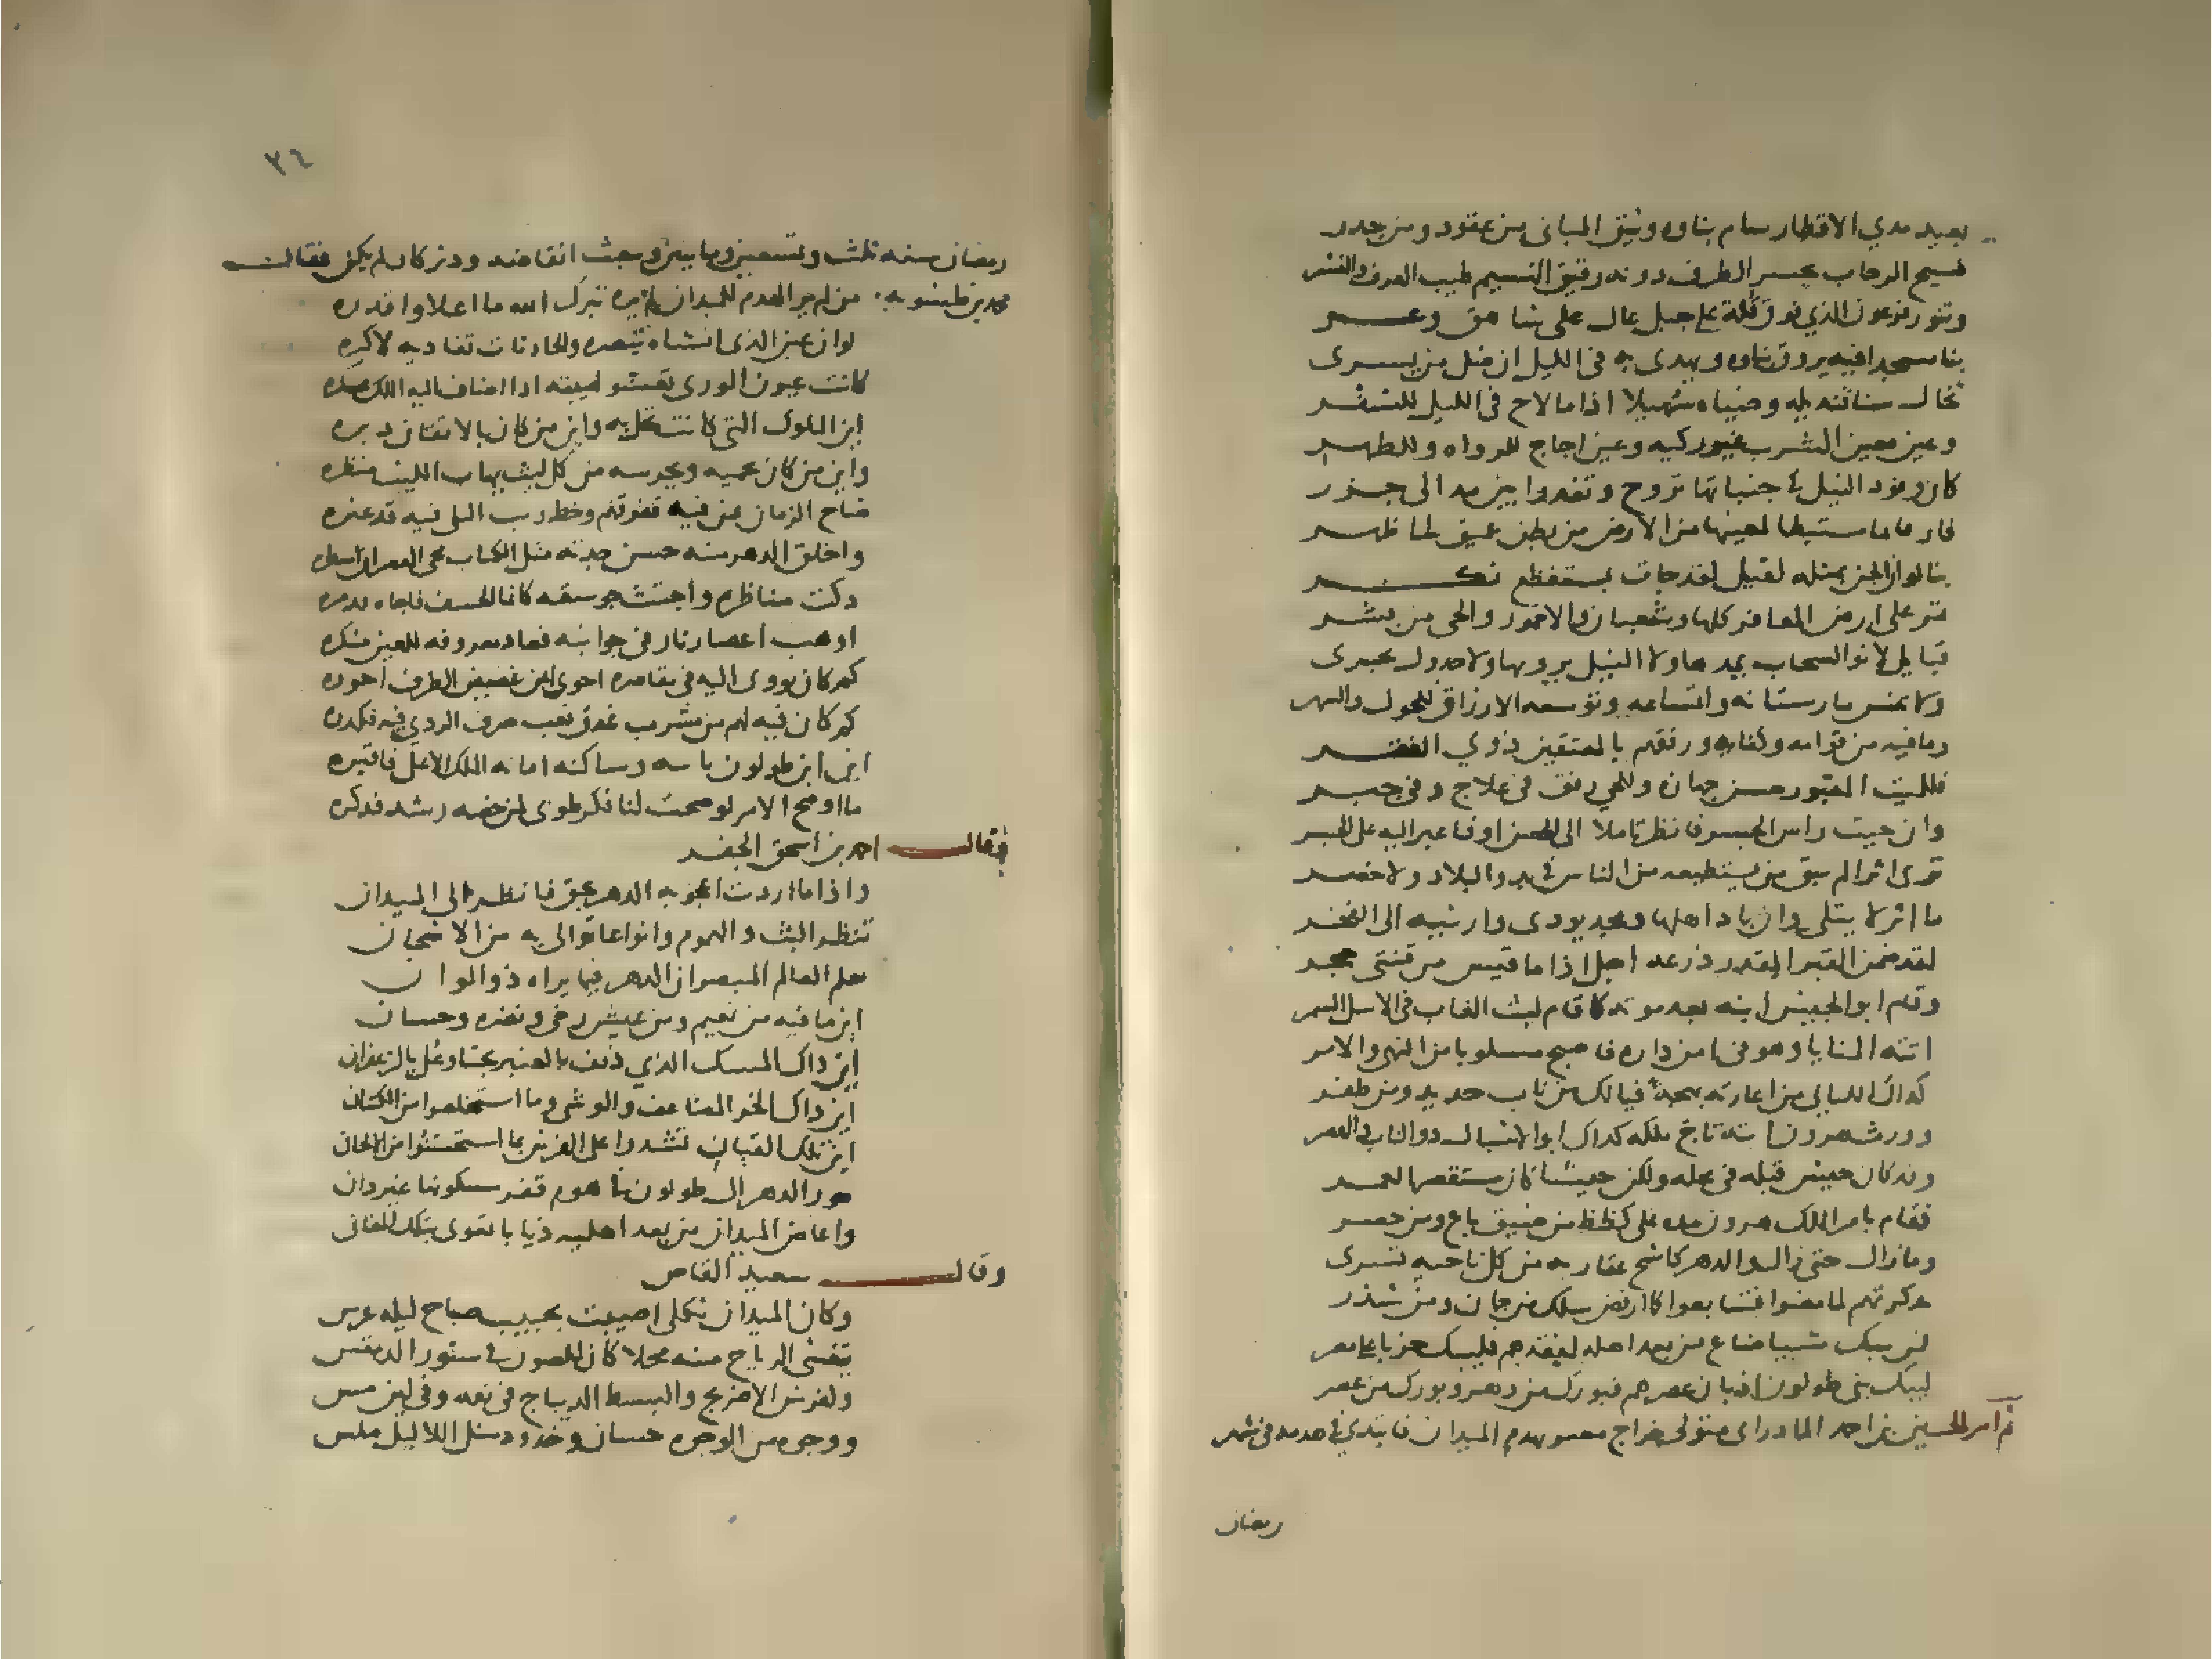 بعيد مدي الاقطار سام بناوه وثيق المباني من عقود ومن جدر
فسيح الرحاب يحسر الطرف دونه رقيق النسيم طيب العرف والنشر
وتنور فرعون الذي فوق قلة على جبل عال على شاهق وعر
بنا مسجدا فيه يروق بناوه ويهدى به في الليل ان ضل من يسرى
تخال سنا قنديله وضياه سهيلا اذا ما لاح في الليل للسفر
وعين معين الشرب غير ركيه وعين اجاج للرواه وللطهر
كان وفود النيل في جنباتها تروح وتغدوا بين مد الى جزر
فار بها مستنبطا لمعينها من الارض من بطن عميق لها ظهر
بنا لو ان الجن بمثله لقيل لقد جات بمستفظع نكر
تمر على ارض المعافر كلها وشعبان والاحمور والحي من بشر
قبايل لا نو السحاب يمدها ولا النيل يرويها ولا جدول يجرى
ولا تنس مارستانه واتساعه وتوسعه الارزاق للحول والشهر
وما فيه من قوامه وكفاته ورفقهم بالمعتفين ذوي الفقر
فللميت المقبور حسن جهازه وللحي رفق في علاج وفي جبر
وان جيت راس الجسر فانظر تاملا الى الحصن او فاعبر اليه على الجسر
ترى اثرا لم يبق من يستطيعه من الناس في بدو البلاد ولا حضر
ماثر لا تبلى وان باد اهلها ومجد يودى وارثيه الى الفخر
لقد ضمن القبر المقدر ذرعه اجل اذا ما قيس من قبتي حجر
وقام ابو الجيش ابنه بعد موته كما قام ليث الغاب في الاسل السمر
اتته المنايا وهو في امن داره فاصبح مسلوبا من النهي والامر
كذاك الليالي من اعارته بهجة فيالك من ناب حديد ومن ظفر
وورث هرون ابنه تاج ملكه كذاك ابو الاشبال ذو الناب والهصر
وقد كان جيش قبله في محله ولكن جيشا كان مستقصر العمر
فقام بامر الملك هرون مده على كظظ من ضيق باع ومن حصر
وما زال حتى زال والدهر كاشح عقاربه من كل ناحيه تسرى
تذكرتهم لما مضوا فتتابعوا كما ارفض سلك من جمان ومن شذر
فمن يبك شيا ضاع من بعد اهله لفقدهم فليبك حزنا على مصر
ليبك بني طولون اذ بان عصرهم فبورك من دهر وبورك من عصر
ثم امر الحسين بن احمد المادراى متولى خراج مصر بهدم الميدان فابتدي في هدمه في شهر
رمضان
٣٤
رمضان سنه ثلث وتسعين ومايتين وبيعت انقاضه ودثر كان لم يكن فقال
محمد بن طشويه من لم ير الهدم للميدان لم يره تبرك الله ما اعلا واقدره
لو ان عين الذى انشاه تبصره والحادثات تعاديه لاكبره
كانت عيون الورى تعشو لهيبته اذا اضاف اليه الملك عسكره
اين الملوك التي كانت تحل به واين من كان بالاتقان دبره
واين من كان يحميه ويحرسه من كل ليث يهاب الليث منظره
صاح الزمان بمن فيه ففرقهم وخط ريب البلى فيه فدعثره
واخلق الدهر منه حسن جدته مثل الكتاب محى العصران اسطره
دكت مناظره واجتث جوسقه كانما الخسف فاجاه فدمره
او هب اعصار نار في جوانبه فعاد معروفه للعين منكره
كم كان يووى اليه في مقاصره احوى اغن غضيض الطرف احوره
كم كان فيه لهم من مشرب غدق فعب صرف الردي فيه فكدره
اين ابن طولون بانيه وساكنه اماته الملك الاعلى فاقبره
ما اوضح الامر لو صحت لنا فكر طوبى لمن خصه رشد فذكره
وقال احمد بن اسحق الجفر
واذا ما اردت اعجوبه الدهر فانظر الى الميدان
تنظر البث والهموم وانواعا توالى به من الاشجان
يعلم العالم المبصر ان الدهر فيما يراه ذو الوان
اين ما فيه من نعيم ومن عيش رخى ونضره وحسان
اين ذاك المسك الذي ديف بالعنبر بحتا وعل بالزعفران
اين ذاك الخز المضاعف والوشي وما استخلصوا من الكتان
اين تلك القيان تشدوا على الفرش بما استحسنوا من الالحان
جور الدهر ال طولون في هوم قفر مسكونها غير دان
واعاض الميدان من بعد اهليه ذيابا تعوى بتلك المغانى
وقال سعيد القاص
وكان الميدان ثكلى اصيبت بحبيب صباح ليله عرس
يتغشى الرياح منه محلا كان للصون في ستور الدمقس
ولفرش الاضريج والبسط الديباج في نعمه وفي لين مس
ووجوه من الوجوه حسان وخدود مثل اللالي ملس